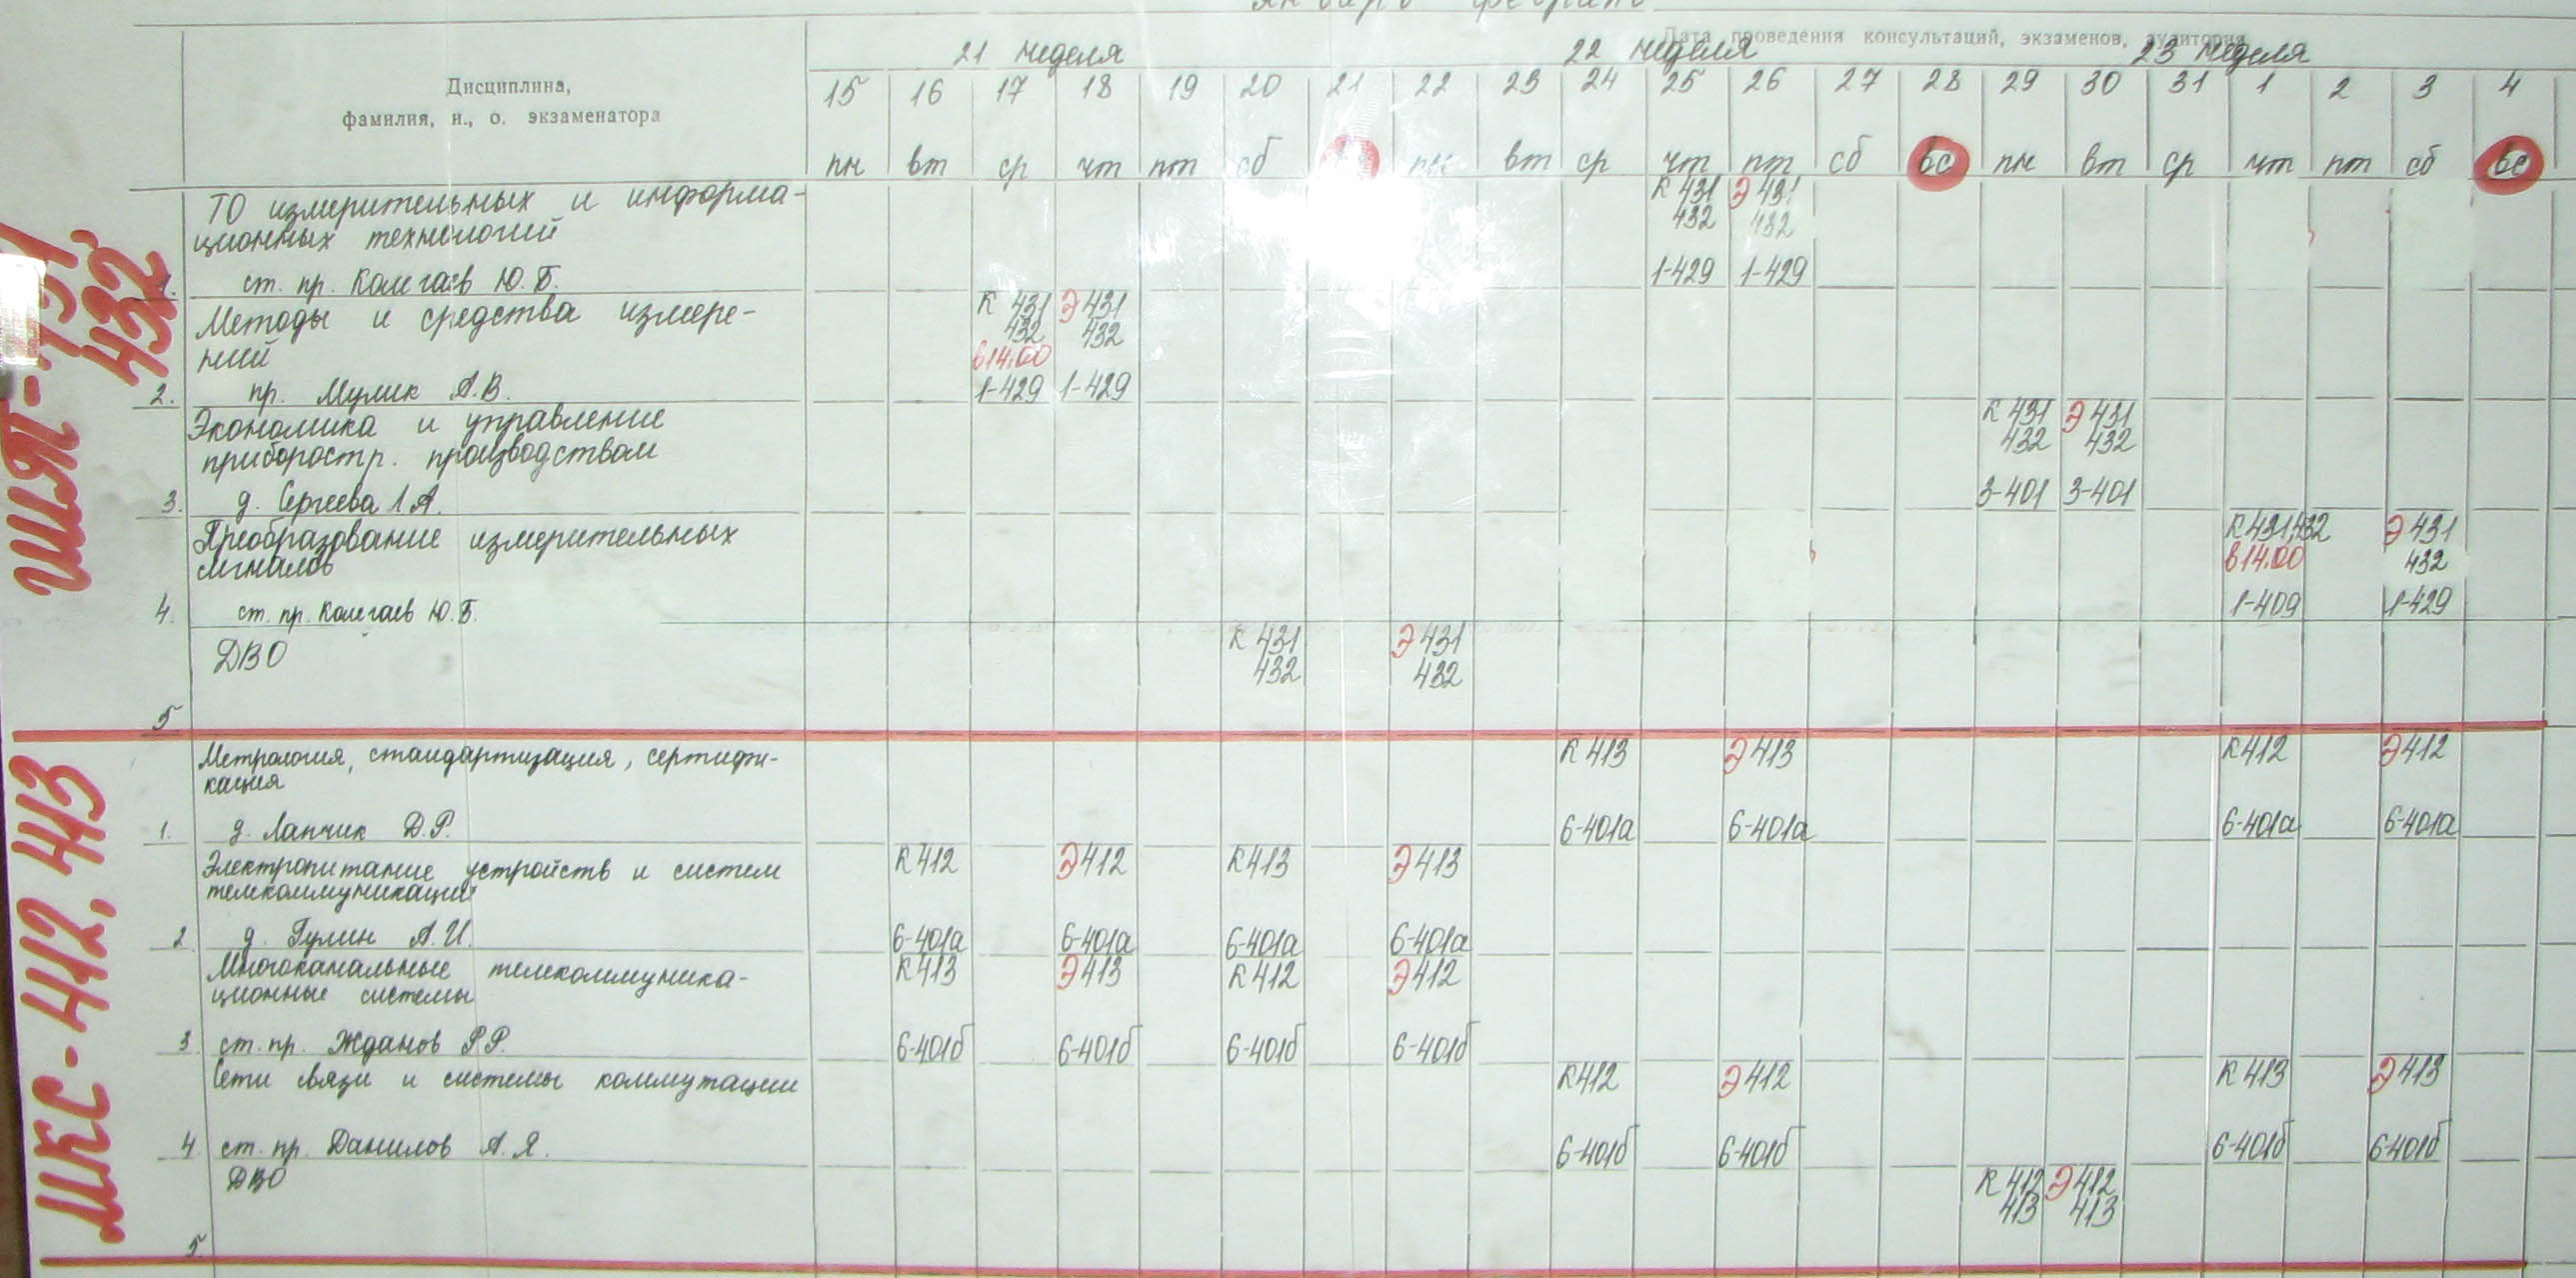 Дата проведения консультаций, экзаменов, аудитория
21 неделя 22 неделя 23 неделя
Дисциплина,
фамилия, и., о. экзаменатора
15 16 17 18 19 20 21 22 23 24 25 26 27 28 29 30 31 1 2 3 4
пн вт ср чт пт сб пн вт ср чт пт сб вс пн вт ср чт пт сб вс
432
ТО измерительных и информа-
ционных технологий
К 431 Э 431
432 432
1-429 1-429
1. ст. пр. Колгаев Ю.Б.
Методы и средства измере-
ний
К 431 Э 431
432 432
в 14.00
1-429 1-429
2. пр. Мулик А.В.
Экономика и управление
приборостр. производством
К 431 Э 431
432 432
3-401 3-401
3. д. Сергеева Л А.
Преобразование измерительных
сигналов
К 431,432 Э 431
в 14.00 432
1-409 1-429
4. ст. пр. Колгаев Ю.Б.
ДВО
К 431 Э 431
432 432
5
МКС-412, 413
Метрология, стандартизация, сертифи-
кация
К 413 Э 413 К 412 Э 412
1. д. Лапчик Д.Р. 6-401а 6-401а 6-401а 6-401а
Электропитание устройств и систем
телекоммуникации
К 412 Э 412 К 413 Э 413
2 д. Гулин А.И. 6-401а 6-401а 6-401а 6-401а
Многоканальные телекоммуника-
ционные системы
К 413 Э 413 К 412 Э 412
3 ст. пр. Жданов Р.Р. 6-401б 6-401б 6-401б 6-401б
Сети связи и системы коммутации
К 412 Э 412 К 413 Э 413
4 ст. пр. Данилов А.Я. 6-401б 6-401б 6-401б 6-401б
ДВО
К 412 Э 412
413 413
5.